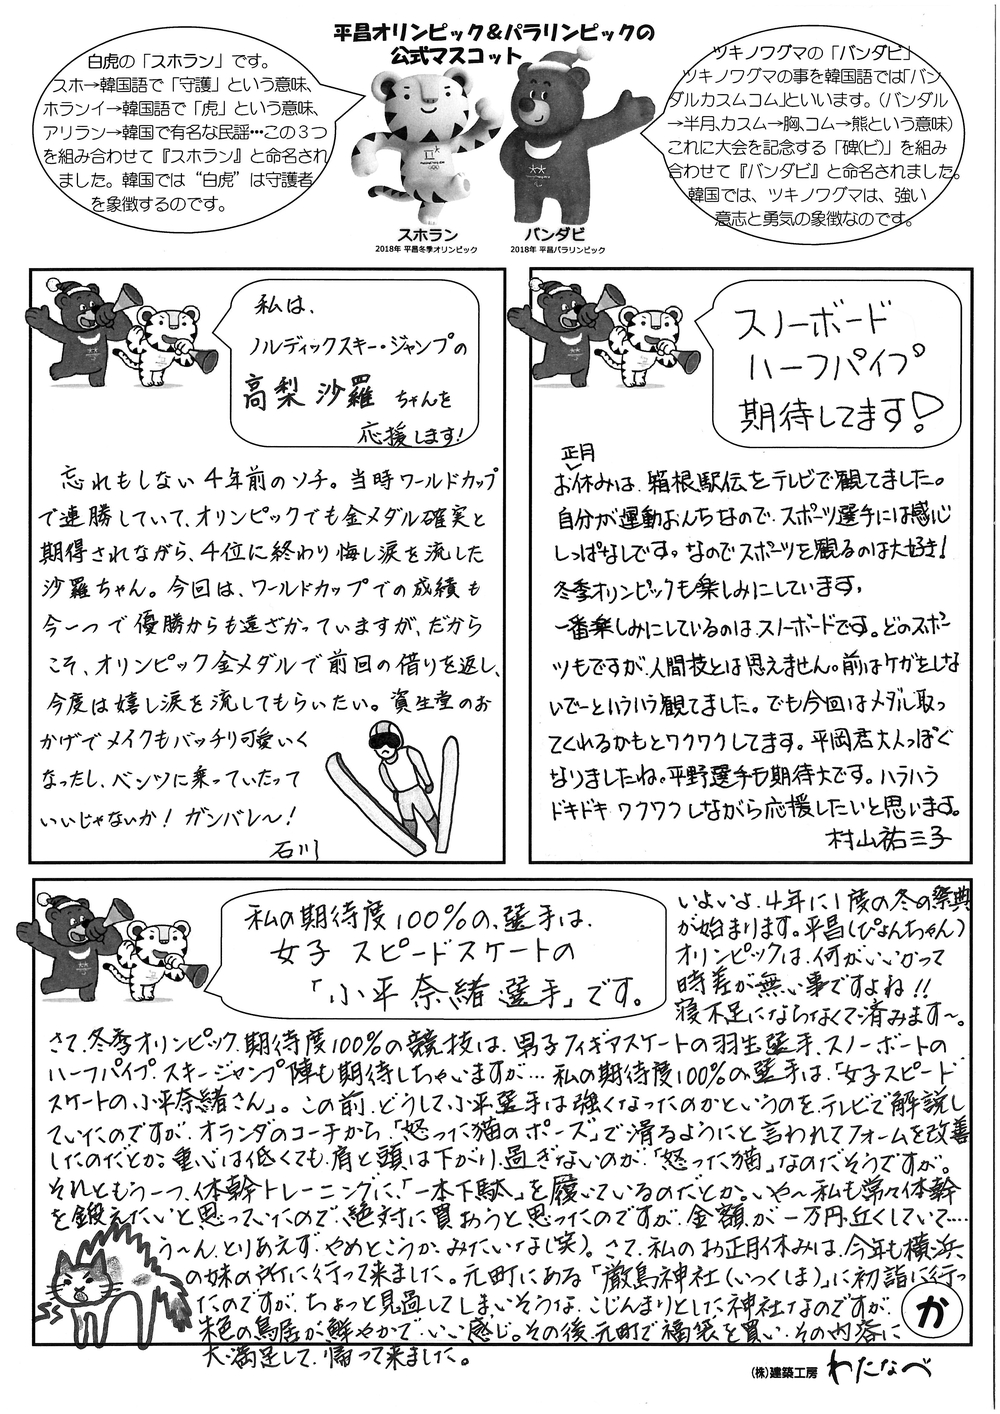 平昌オリンピック&パラリンピックの
公式マスコット
白虎の「スホラン」です。
スホ→韓国語で「守護」という意味、
ホランイ→韓国語で「虎」という意味、
アリラン→韓国で有名な民謡…この3つ
を組み合わせて『スホラン』と命名され
ました。韓国では“白虎”は守護者
を象徴するのです。
ツキノワグマの「バンダビ」
ツキノワグマの事を韓国語では「バン
ダルカスムコム」といいます。(バンダル
→半月、カスム→胸、コム→熊という意味)
これに大会を記念する「碑(ビ)」を組み
合わせて『バンダビ』と命名されました。
韓国では、ツキノワグマは、強い
意志と勇気の象徴なのです。
スホラン
2018年 平昌冬季オリンピック
バンダビ
2018年 平昌パラリンピック
私は、
ノルディックスキー・ジャンプの
高梨 沙羅 ちゃんを
応援します!
忘れもしない4年前のソチ。当時ワールドカップ
で連勝していて、オリンピックでも金メダル確実と
期得されながら、4位に終わり悔し涙を流した
沙羅ちゃん。今回は、ワールドカップでの成績も
今一つで優勝からも遠ざかっていますが、だから
こそ、オリンピック金メダルで前回の借りを返し、
今度は嬉し涙を流してもらいたい。資生堂のお
かげでメイクもバッチリ可愛いく
なったし、ベンツに乗っていたって
いいじゃないか! ガンバレ～!
石川
スノーボード
ハーフパイプ
期待してます!
正月
お休みは、箱根駅伝をテレビで観てました。
自分が運動おんちなので、スポーツ選手には感心
しっぱなしです。なのでスポーツを観るのは大好き!
冬季オリンピックも楽しみにしています。
一番楽しみにしているのはスノーボードです。どのスポー
ツもですが、人間技とは思えません。前はケガをしな
いでーというハラハラ観てました。でも今回はメダル取っ
てくれるかもとワクワクしてます。平岡君大人っぽく
なりましたね。平野選手も期待大です。ハラハラ
ドキドキ ワクワクしながら応援したいと思います。
村山祐三子
私の期待度100%の、選手は、
女子 スピードスケートの
「小平 奈緒 選手」です。
いよいよ、4年に1度の冬の祭典
が始まります。平昌(ぴょんちゃん)
オリンピックは、何がいいかって
時差が無い事ですよね!!
寝不足にならなくて済みます～。
さて、冬季オリンピック、期待度100%の競技は、男子フィギアスケートの羽生選手、スノーボートの
ハーフパイプ、スキージャンプ陣も期待しちゃいますが…私の期待度100%の選手は、「女子スピード
スケートの、小平奈緒さん」。この前、どうして、小平選手は強くなったのかというのを、テレビで解説し
ていたのですが、オランダのコーチから、「怒った猫のポーズ」で滑るようにと言われてフォームを改善
したのだとか。重心は低くても、肩と頭は下がり過ぎないのが、「怒った猫」なのだそうですが。
それともう一つ、体幹トレーニングに、「一本下駄」を履いているのだとか。いや～私も常々体幹
を鍛えたいと思っていたので、絶対に買おうと思ったのですが、金額が一万円近くしていて‥‥
う～ん、とりあえず、やめとこうか、みたいな(笑)。さて、私のお正月休みは、今年も横浜、
の妹の所に行って来ました。元町にある「厳島神社(いつくしま)」に初詣に行っ
たのですが、ちょっと見過してしまいそうな、こじんまりとした神社なのですが、
朱色の鳥居が鮮やかで、いい感じ。その後、元町で福袋を買い、その内容に
大満足して、帰って来ました。
か
(株)建築工房 わたなべ